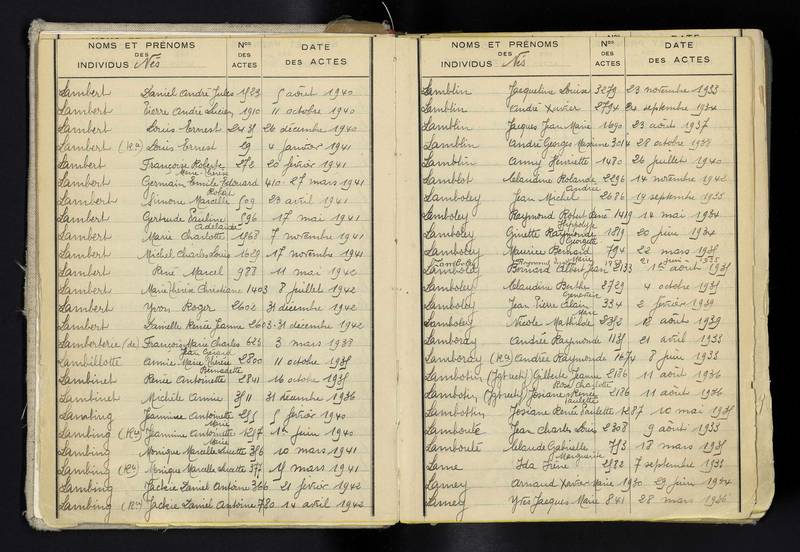 NOMS ET PRÉNOMS
DES
INDIVIDUS Nés
Nos
DES
ACTES
DATE
DES ACTES
Lambert Daniel André Jules 1523 5 août 1940
Lambert Pierre André Lucien 1910 11 octobre 1940
Lambert Louis Ernest 2431 26 décembre 1940
Lambert (Ra) Louis Ernest 29 4 janvier 1941
Lambert Françoise 272 20 février 1941
Marie Thérèse
Lambert Germain Emile Edouard 410 27 mars 1941
Robert
Lambert Simone Marcelle 509 23 avril 1941
Lambert Gertrude Pauline 596 17 mai 1941
Adelaïde
Lambert Marie Charlotte 1568 7 novembre 1941
Lambert Michel Charles Louis 1629 17 novembre 1941
Lambert René Marcel 988 11 mai 1942
Lambert Marie Thérèse Christiane 1403 8 juillet 1942
Lambert Yvon Roger 2602 31 décembre 1942
Lambert Danielle Renée Jeanne 2603 31 décembre 1942
Lamberterie (de) François Marie Charles 623 3 mars 1938
Jean Gérard
Lambillotte Annie Marie Thérèse 2800 11 octobre 1935
Bernadette
Lambinet Renée Antoinette 2841 16 octobre 1935
Lambinet Michèle Annie 3511 31 décembre 1936
Lambing Jeannine Antoinette 255 5 février 1940
Marie
Lambing (Ra) Jeannine Antoinette 1217 1er juin 1940
Marie
Lambing Monique Marcelle Lucette 356 10 mars 1941
Lambing (Ra) Monique Marcelle Lucette 377 15 mars 1941
Lambing Jackie Daniel Antoine 366 21 février 1942
Lambing (Ra) Jackie Daniel Antoine 780 14 avril 1942
NOMS ET PRÉNOMS
DES
INDIVIDUS Nés
Nos
DES
ACTES
DATE
DES ACTES
Lamblin Jacqueline Louise 3279 23 novembre 1933
Lamblin André Xavier 2794 24 septembre 1934
Lamblin Jacques Jean Marie 1690 23 août 1937
Lamblin André Georges Maxime 3014 28 octobre 1938
Lamblin Anny Henriette 1480 26 juillet 1940
Lamblot Claudine Rolande 2296 14 novembre 1942
Andrée
Lamboley Jean Michel 2686 19 septembre 1933
Lamboley Raymond Robert René 1419 14 mai 1934
Hippolyte
Lamboley Ginette Raymonde 1819 20 juin 1934
Georgette
Lamboley Maurice Bernard 794 22 mars 1935
Lamboley Raymond Marie 21 juin 1935
Lamboley Bernard Albert Jean 2133 1er août 1935
Lamboley Claudine Berthe 2729 4 octobre 1935
Geneviève
Lamboley Jean Pierre Alain 334 2 février 1939
Marc
Lamboley Nicole Mathilde 2352 18 août 1939
Lamboray Andrée Raymonde 1131 21 avril 1933
Lamboray (Ra) Andrée Raymonde 1674 8 juin 1933
Lambotin Gilberte Jeanne 2186 11 août 1936
Rose Charlotte
Lambotin Josiane Renée 2186 11 août 1936
Paulette
Lambotin Josiane Renée Paulette 1287 10 mai 1935
Lambouté Jean Charles Louis 2308 9 août 1933
Lambouté Claude Gabrielle 753 18 mars 1935
Marguerite
Lame Ida Irène 2582 7 septembre 1933
Lamey Arnaud Xavier Marie 1930 29 juin 1934
Lamey Yves Jacques Marie 841 28 mars 1936